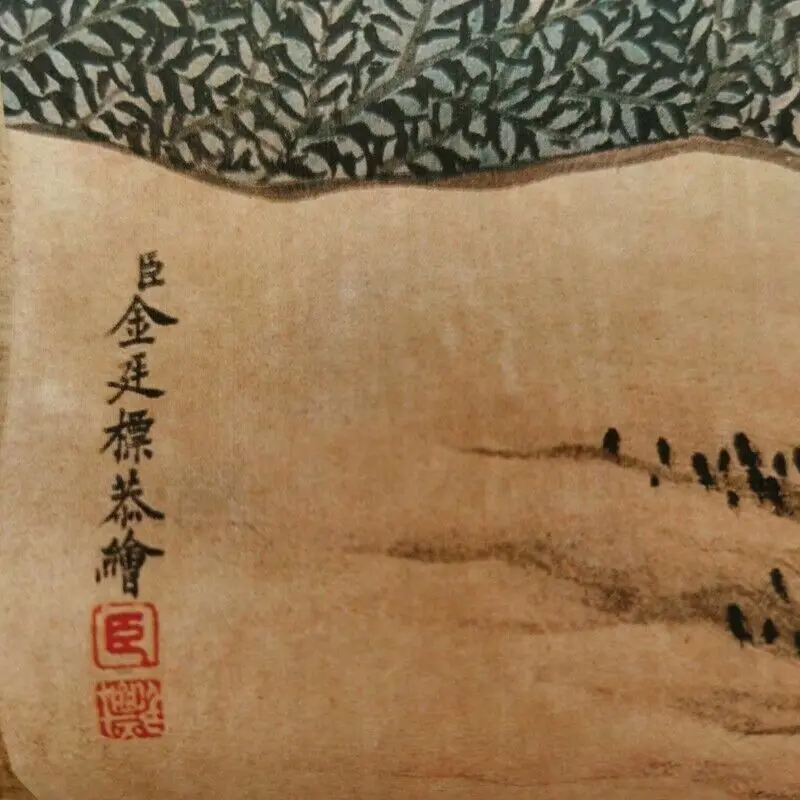 臣金廷標恭繪
臣